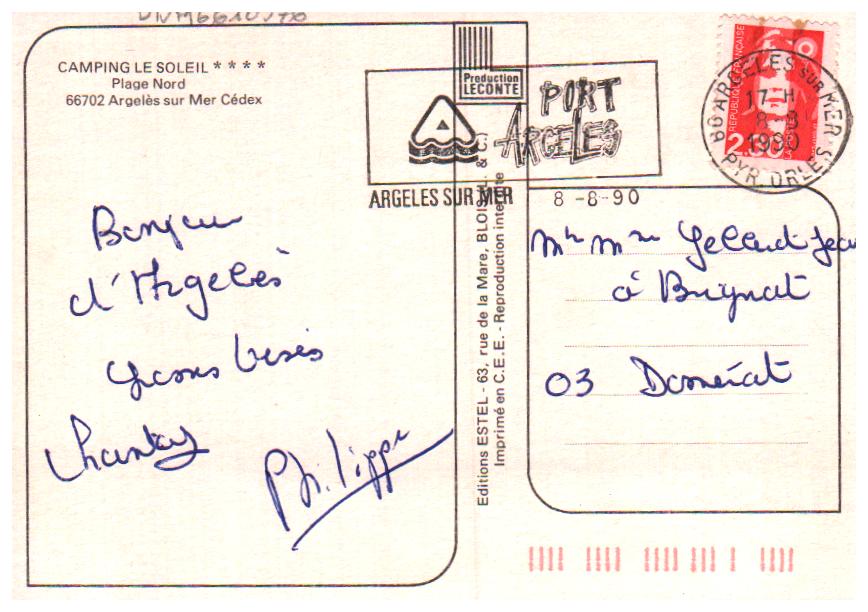 CAMPING LE SOLEIL ****
Plage Nord
66702 Argelès sur Mer Cédex
Bonjour
d'Argelès
Gros bisés
Chantal
Philippe
Production
LECONTE
PORT
ARGELES
ARGELES SUR MER 8-8-90
Editions ESTEL - 63, rue de la Mare, BLOIS (L. & C.)
Imprimé en C.E.E. - Reproduction interdite
REPUBLIQUE FRANÇAISE
66 ARGELES SUR MER
17 H
8-8
1990
PYR. ORLES
Mr Mme
à Brignat
03 Domérat